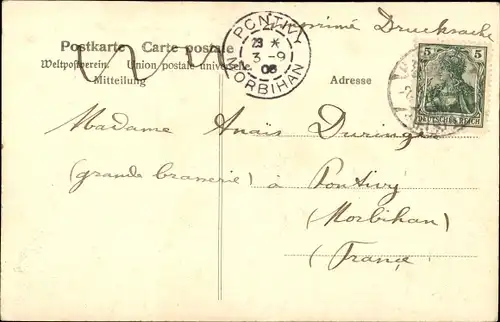 Imprimé Drucksache
Postkarte Carte postale
Weltpostverein. Union postale universelle.
Mitteilung
Adresse
PONTIVY
23 *
3 - 9
06
MORBIHAN
5 5
DEUTSCHES REICH
Madame Anaïs Düringer
(grande brasserie) à Pontivy
(Morbihan)
(France)